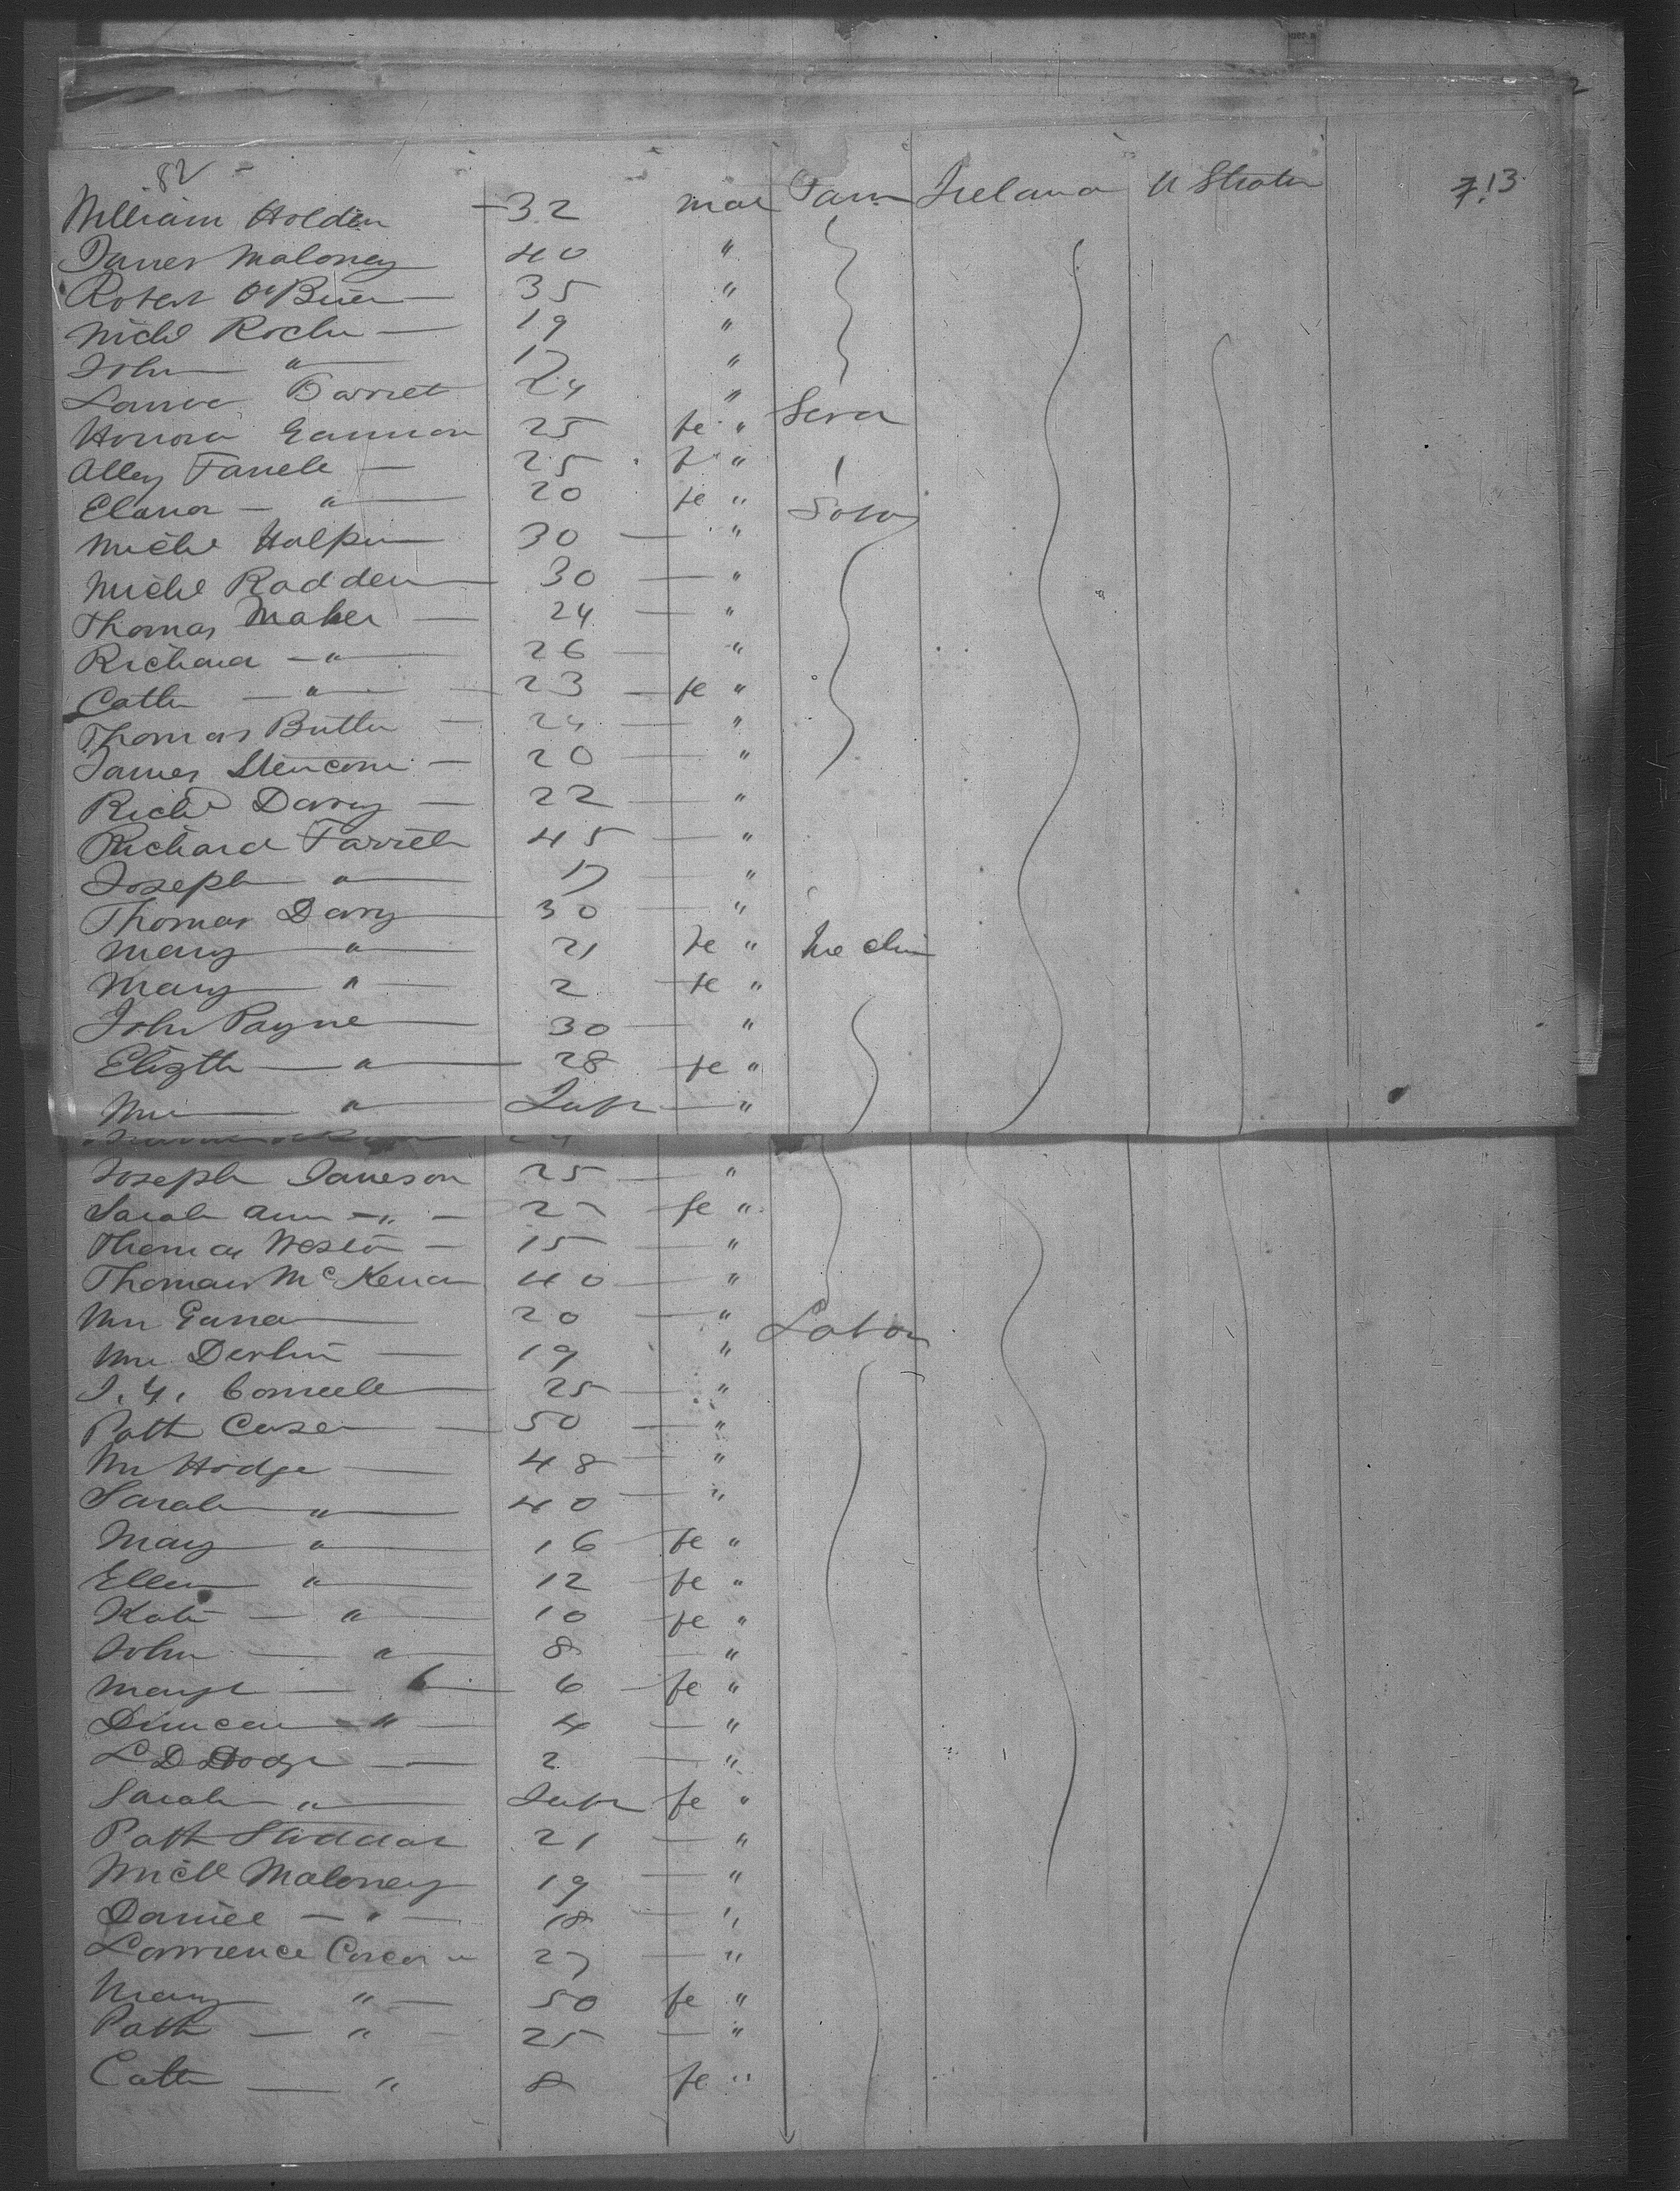 82
William Holden 32 mal Farm Ireland U States 713
James Maloney 40 "
Robert O'Brien 35 "
Michl Roche 19 "
John " 17 "
Barret 24 "
Honora Gannon 25 fe " Serv
Alley Farrell 25 f "
Elanor " 20 fe "
Michl Halpin 30 "
Michl Radden 30 "
Thomas Maher 24 "
Richard " 26 "
Cath " 23 fe "
Thomas Butler 24 "
James 20 "
Richd Darcy 22 "
Richard Farrell 45 "
Joseph " 17 "
Thomas Darcy 30 "
Mary " 21 fe "
Mary " 2 fe "
John Payne 30 "
Elizth " 28 fe "
Wm " Infn "
Joseph Jameson 25 "
Sarah Ann " fe "
Thomas Weston 15 "
Thomas McKenna 40 "
Wm 20 " Labor
Wm Devlin 19 "
25 "
Patk Casen 50 "
Wm Hodge 48 "
Sarah " 40 "
Mary " 16 fe "
Ellen " 12 fe "
Kate " 10 fe "
John " 8 "
Margt 6 fe "
Duncan " 4 "
L D Hodge 2 "
Sarah " Infn fe "
Patk 21 "
Michl Maloney 19 "
Daniel " 18 "
Lawrence 27 "
Mary " 50 fe "
Patk " 25 "
Cath " 8 fe "